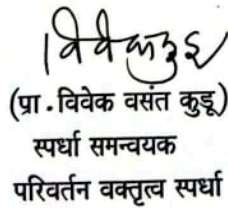 विवेक कुडू
(प्रा.विवेक वसंत कुडू)
स्पर्धा समन्वयक
परिवर्तन वक्तृत्व स्पर्धा